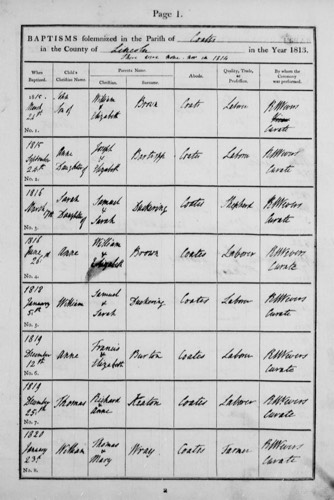 Page 1.
BAPTISMS solemnized in the Parish of Coates
in the County of Lincoln in the Year 1813.
There were none nor in 1814
When Baptized. Child's Christian Name. Parents Name. Abode. Quality, Trade, or Profession. By whom the Ceremony was performed.
Christian. Surname.
1815. March 25th No. 1. John Son of William & Elizabeth Brown Coats Labour Curate
1815 September 24th No. 2. Anne Daughter of Joseph & Elizabeth Coats Labour Curate
1816 March 17th No. 3. Sarah Daughter of Samuel & Sarah Duckering Coates Shepherd Curate
1816 June No. 4. Anne William & Elizabeth Brown Coates Labourer Curate
1818 January 5th No. 5. William Samuel & Sarah Duckering Coates Labour Curate
1819 December 12th No. 6. Anne Francis & Elizabeth Burton Coates Labour Curate
1819 December 25th No. 7. Thomas Richard & Anne Coates Labourer Curate
1820 January 23d No. 8. William Thomas & Mary Wray Coates Farmer Curate